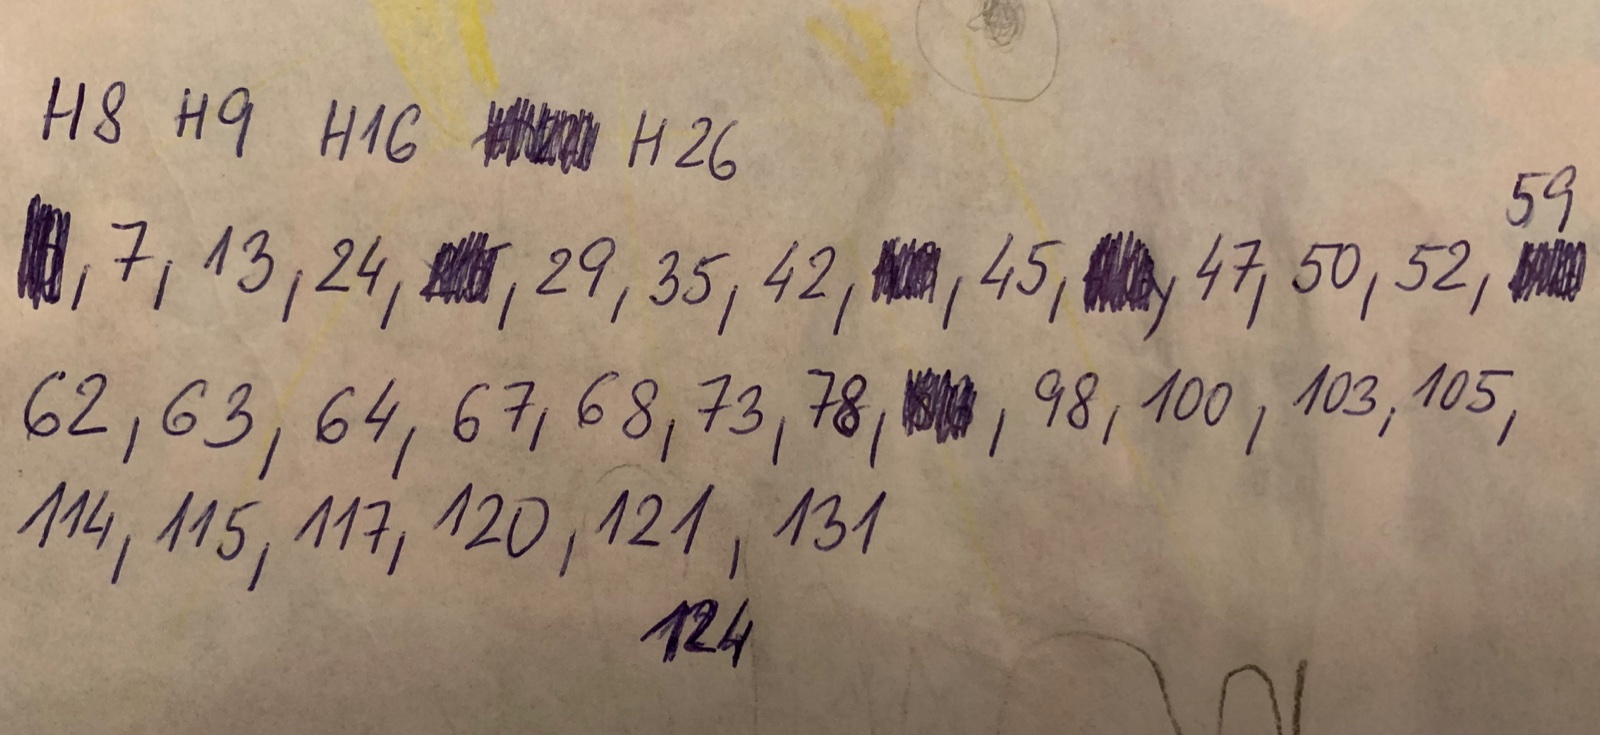 H8 H9 H16 H26
59
, 7, 13, 24, , 29, 35, 42, , 45, , 47, 50, 52,
62, 63, 64, 67, 68, 73, 78, , 98, 100, 103, 105,
114, 115, 117, 120, 121, 131
124